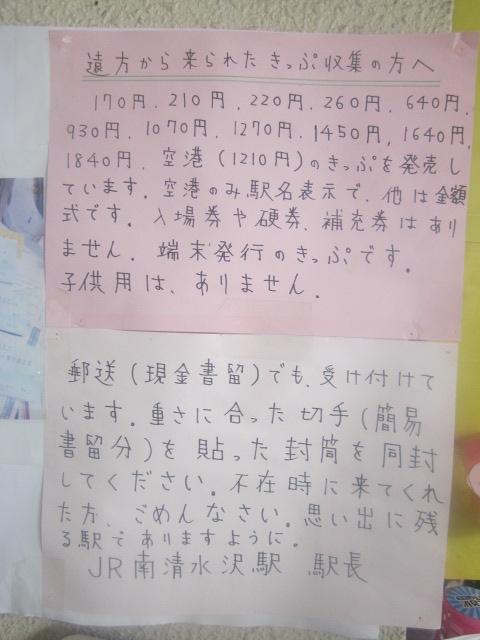 遠方から来られたきっぷ収集の方へ
170円．210円，220円．260円．640円．
930円．1070円．1270円．1450円，1640円，
1840円．空港（1210円）のきっぷを発売し
ています。空港のみ駅名表示で、他は金額
式です。入場券や硬券、補充券はあり
ません。端末発行のきっぷです。
子供用は、ありません。
郵送（現金書留）でも、受け付けて
います。重さに合った切手（簡易
書留分）を貼った封筒を同封
してください。不在時に来てくれ
た方、ごめんなさい。思い出に残
る駅でありますように。
JR南清水沢駅 駅長